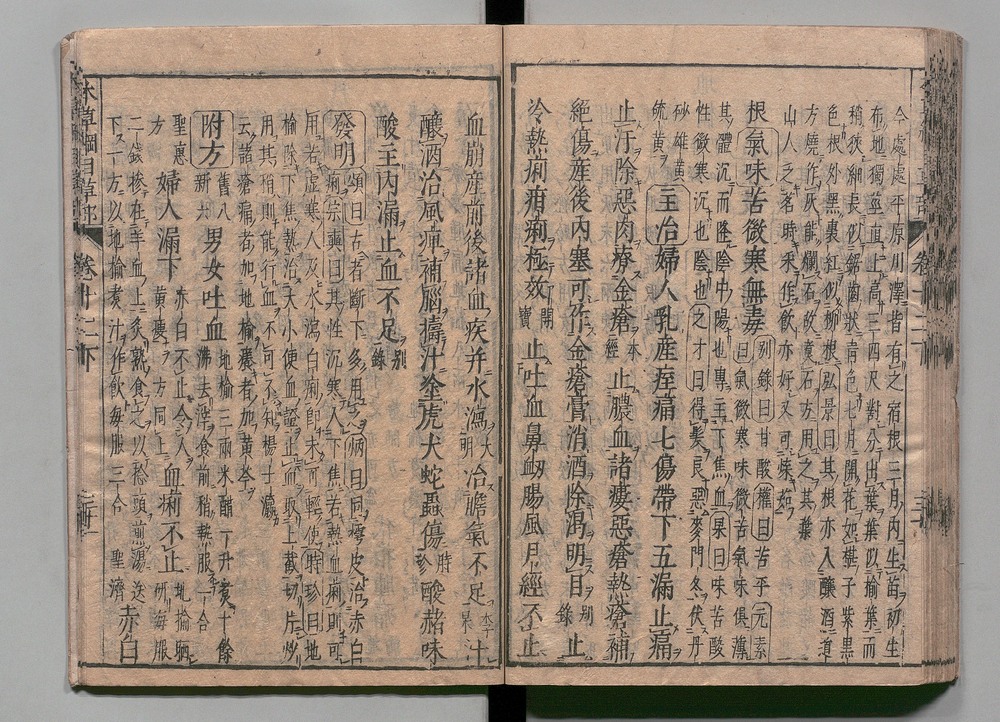 今處處平原川澤皆有之宿根三月內生苗初生
布地獨莖直上高三四尺對分出葉葉似榆葉而
稍狹細長似鋸齒狀青色七月開花如椹子紫黑
色根外黑裏紅似柳根弘景曰其根亦入釀酒道
方燒作灰能爛石故煑石方用之其葉
山人乏茗時采作飲亦好又可煠茹
根氣味苦微寒無毒別錄曰甘酸權曰苦平元素
曰氣微寒味微苦氣味俱薄
其體沉而降陰中陽也專主下焦血杲曰味苦酸
性微寒沉也陰也之才曰得髮良惡麥門冬伏丹
砂雄黃
硫黃
主治婦人乳產痓痛七傷帶下五漏止痛
止汗除惡肉療金瘡本經止膿血諸瘻惡瘡熱瘡補
絕傷產後內塞可作金瘡膏消酒除渴明目別錄止
冷熱痢疳痢極效開寶止吐血鼻衄腸風月經不止
血崩產前後諸血疾并水瀉大明治膽氣不足李杲汁
釀酒治風痺補腦擣汁塗虎犬蛇蟲傷時珍酸赭味
酸主內漏止血不足別錄
發明頌曰古者斷下多用之炳曰同樗皮治赤白
痢宗奭曰其性沉寒入下焦若熱血痢則可
用若虛寒人及水瀉白痢即未可輕使時珍曰地
榆除下焦熱治大小便血證止血取上截切片炒
用其梢則能行血不可不知楊士瀛
云諸瘡痛者加地榆癢者加黃芩
附方舊八新六男女吐血地榆三兩米醋一升煑十餘
沸去滓食前稍熱服一合
聖惠方婦人漏下赤白不止令人黃痩方同上血痢不止地榆晒研每服
二錢摻在羊血上炙熟食之以捻頭煎湯送
下一方以地榆煑汁作飲每服三合聖濟赤白
本草綱目草部
卷十二下